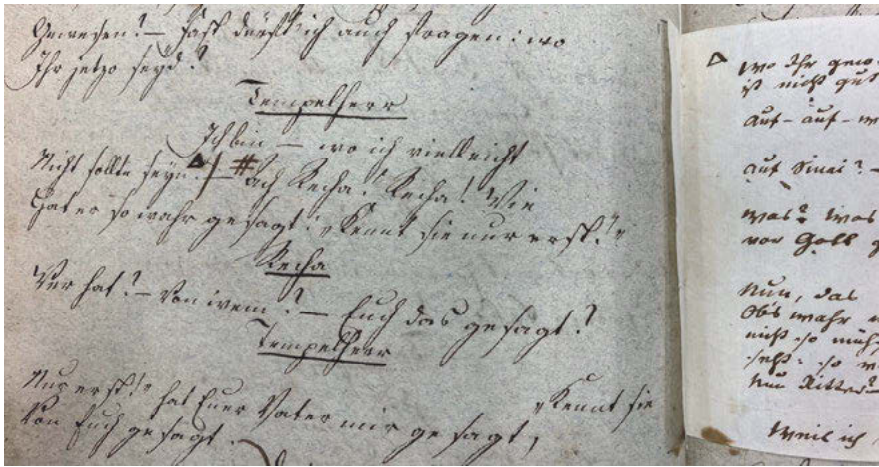 Gewesen? — fast dürft' ich auch fragen: wo
Ihr jetzo seyd?
Tempelherr
Ich bin — wo ich vielleicht
Nicht sollte seyn. — # Ach Recha! Recha! Wie
Hat er so wahr gesagt: „Kennt sie nur erst!"
Recha
Wer hat? — Von wem? — Euch das gesagt?
Tempelherr
„Kennt sie
Nur erst!" hat Euer Vater mir gesagt,
Von Euch gesagt.
wo Ihr
ist nicht gut
auf - auf -
auf Sinai? -
was? was
vor Gott
Nun, das
Obs wahr
nicht so müh
Nun Ritter? -
Weil ich